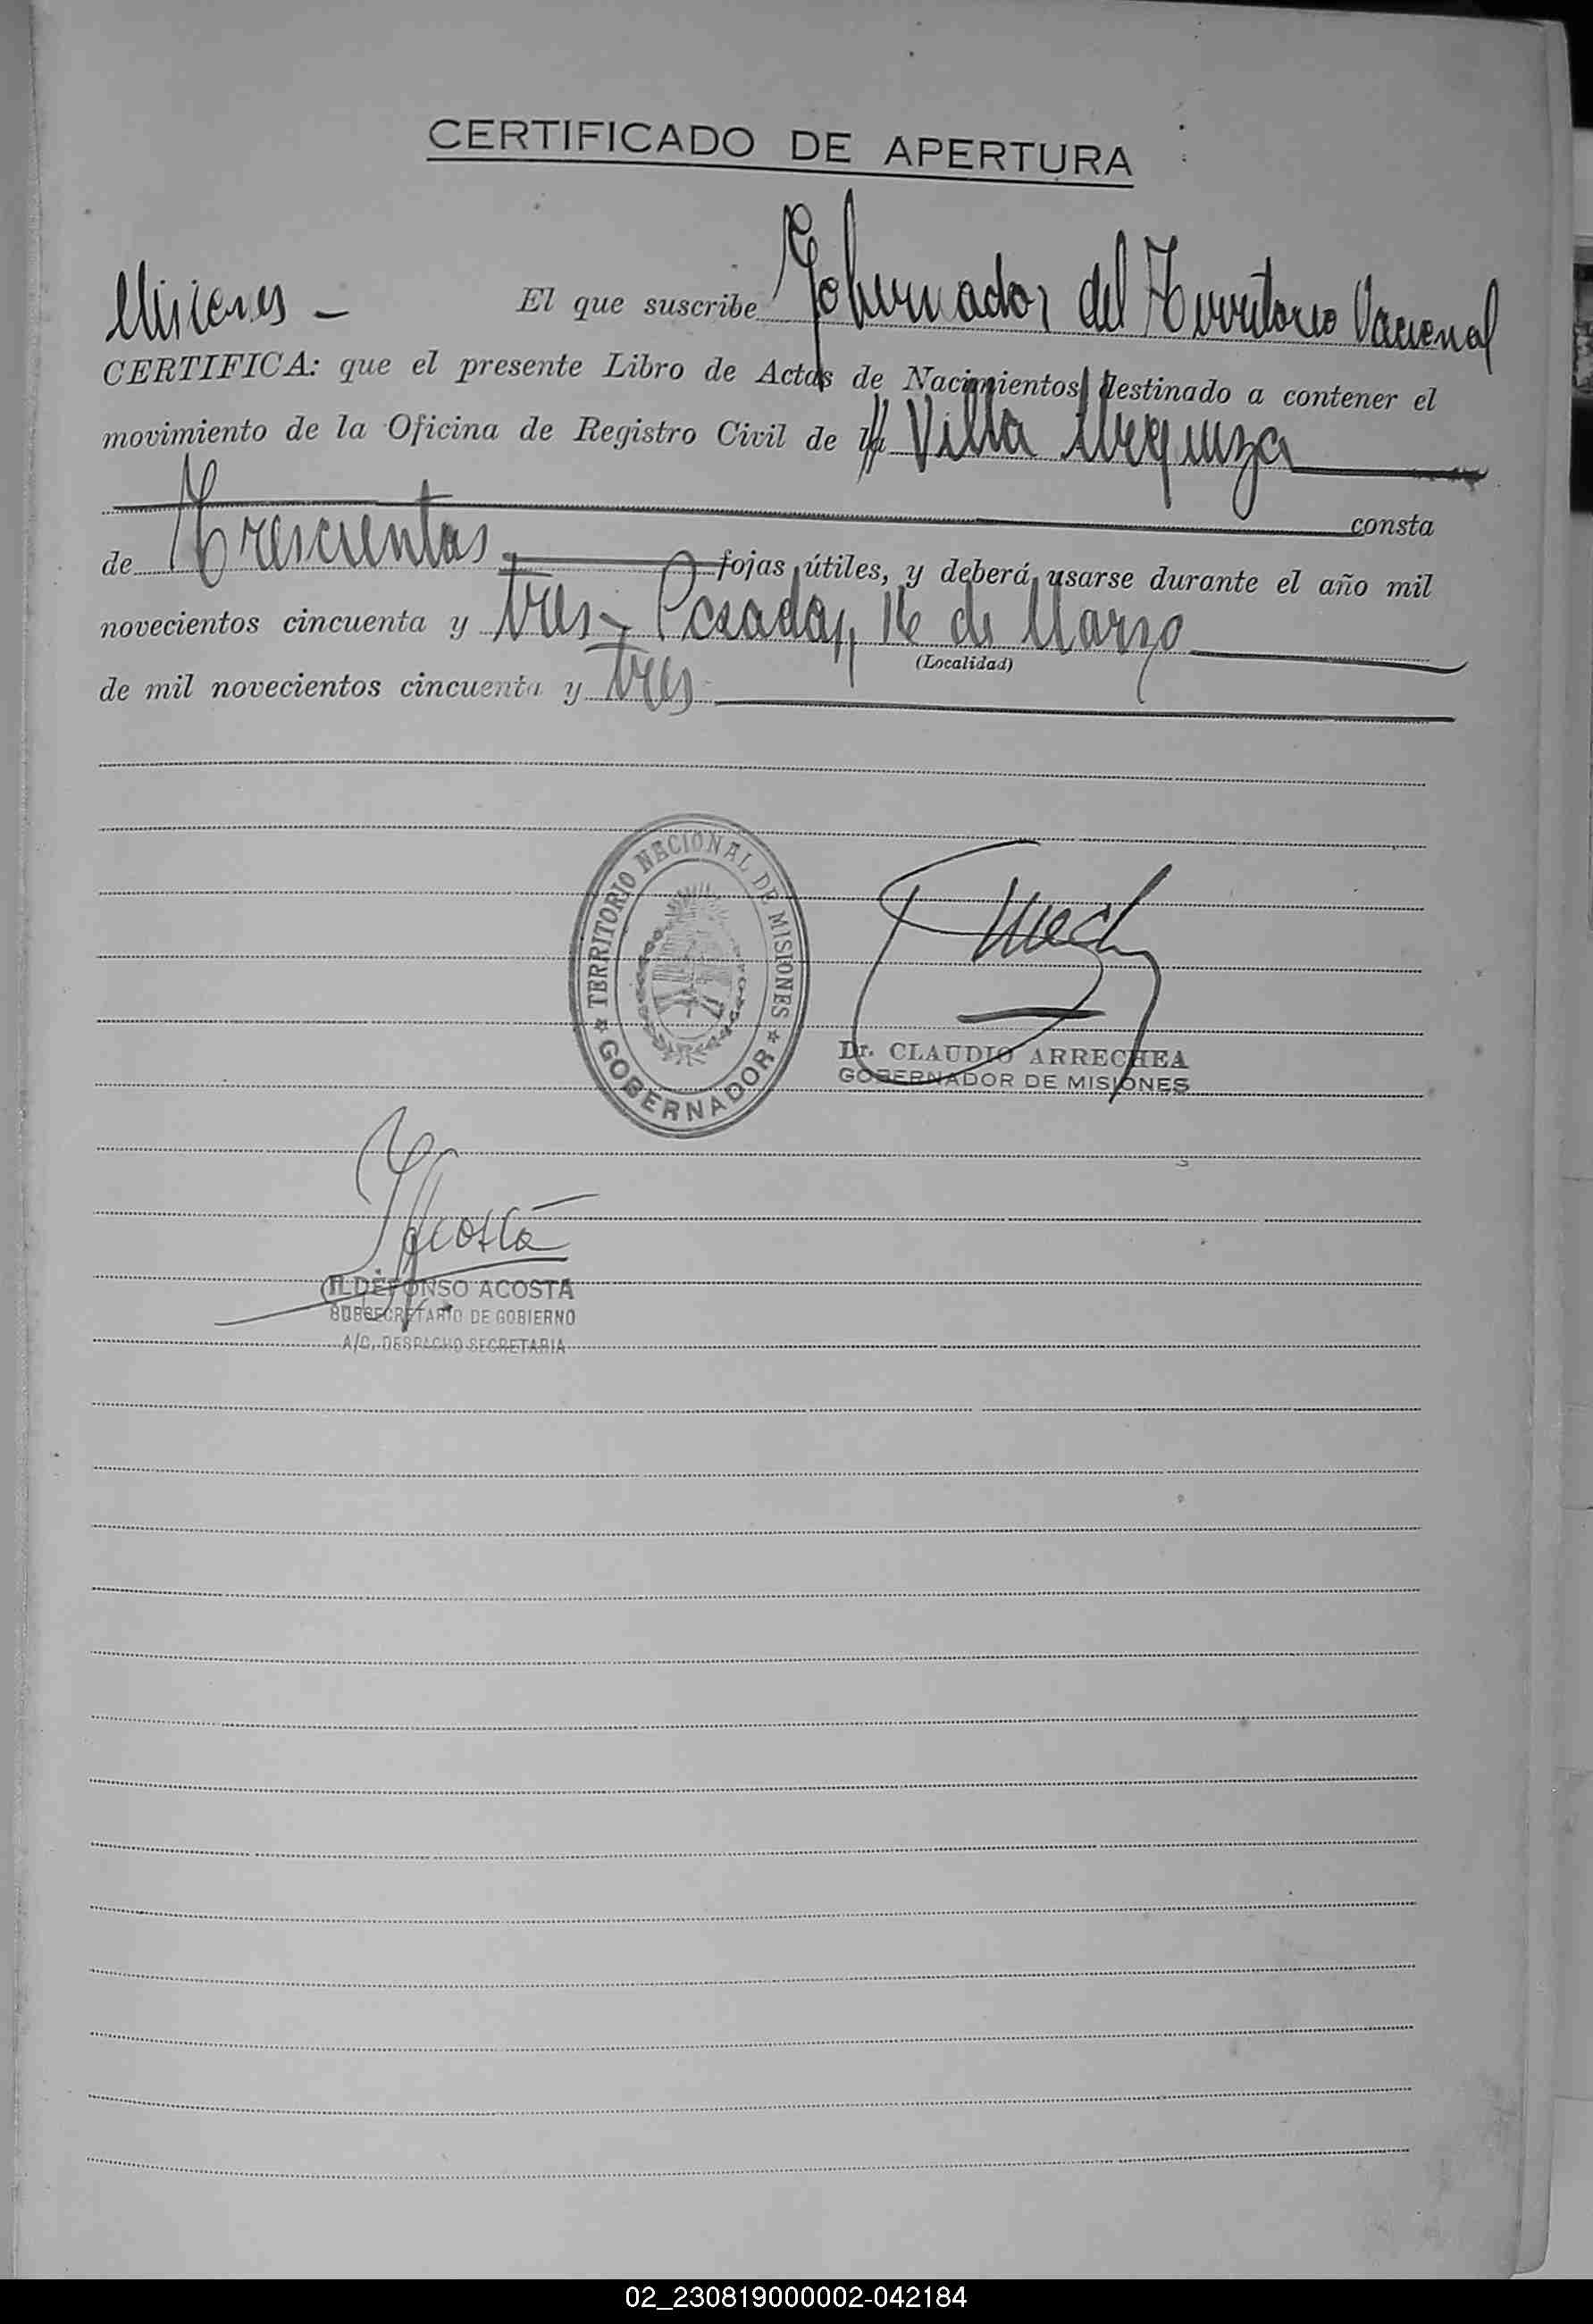 CERTIFICADO DE APERTURA
El que suscribe Gobernador del Territorio Nacional
Misiones -
CERTIFICA: que el presente Libro de Actas de Nacimientos destinado a contener el
movimiento de la Oficina de Registro Civil de la Villa Urquiza
consta
de Trescientas fojas útiles, y deberá usarse durante el año mil
novecientos cincuenta y tres - Posadas, 16 de Marzo
(Localidad)
de mil novecientos cincuenta y tres
TERRITORIO NACIONAL DE MISIONES
GOBERNADOR
Dr. CLAUDIO ARRECHEA
GOBERNADOR DE MISIONES
IAcosta
ILDEFONSO ACOSTA
SUBSECRETARIO DE GOBIERNO
A/C. DESPACHO SECRETARIA
02_230819000002-042184